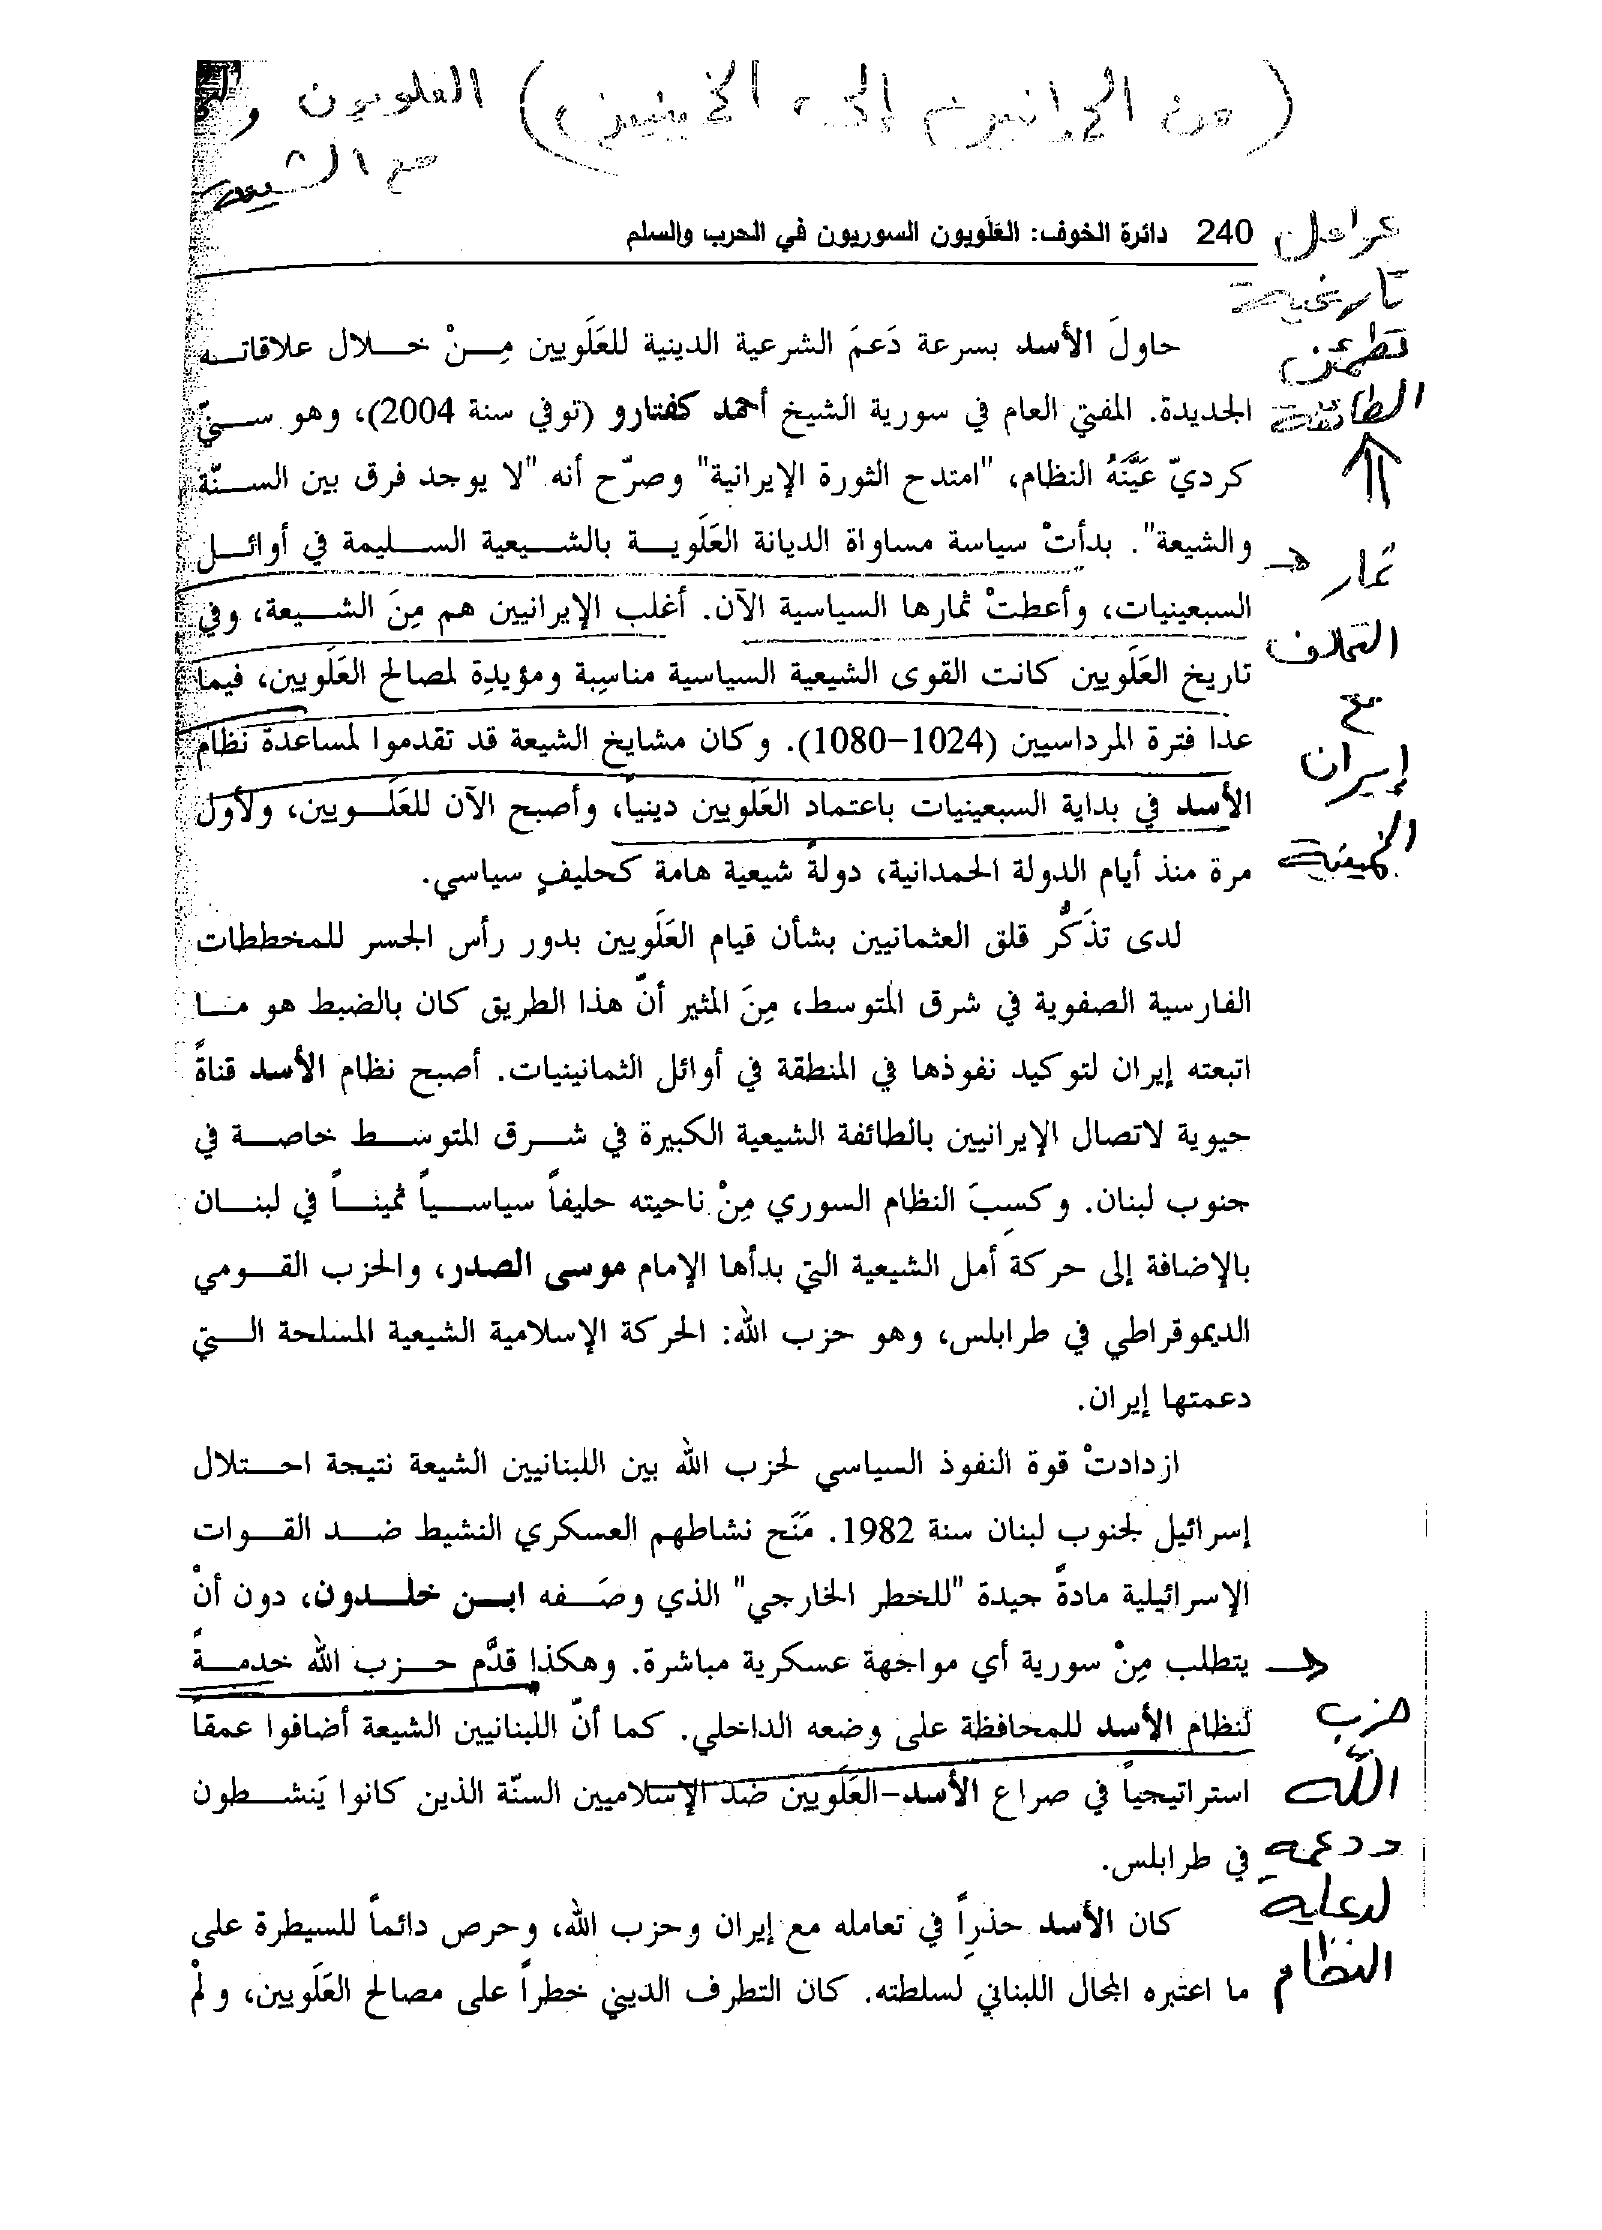 (من الحمدانيين إلى الخمينيين) العلويون و
مع الشيعة
240 دائرة الخوف: العَلَويون السوريون في الحرب والسلم
عوامل
تاريخية
تطمئن
الطائفة
حاولَ الأسد بسرعة دَعمَ الشرعية الدينية للعَلَويين مِنْ خلال علاقاته
الجديدة. المفتي العام في سورية الشيخ أحمد كفتارو (توفي سنة 2004)، وهو سنّيّ
كرديّ عَيَّنَهُ النظام، "امتدح الثورة الإيرانية" وصرّح أنه "لا يوجد فرق بين السنّة
والشيعة". بدأتْ سياسة مساواة الديانة العَلَوية بالشيعية السليمة في أوائل
السبعينيات، وأعطتْ ثمارها السياسية الآن. أغلب الإيرانيين هم مِنَ الشيعة، وفي
تاريخ العَلَويين كانت القوى الشيعية السياسية مناسِبة ومؤيدِة لمصالح العَلَويين، فيما
عدا فترة المرداسيين (1024–1080). وكان مشايخ الشيعة قد تقدموا لمساعدة نظام
الأسد في بداية السبعينيات باعتماد العَلَويين دينياً، وأصبح الآن للعَلَويين، ولأول
مرة منذ أيام الدولة الحمدانية، دولةً شيعية هامة كحليفٍ سياسي.
ثمار
التحالف
مع
إيران
الخمينية
لدى تذَكُّر قلق العثمانيين بشأن قيام العَلَويين بدور رأس الجسر للمخططات
الفارسية الصفوية في شرق المتوسط، مِنَ المثير أنّ هذا الطريق كان بالضبط هو ما
اتبعته إيران لتوكيد نفوذها في المنطقة في أوائل الثمانينيات. أصبح نظام الأسد قناةً
حيوية لاتصال الإيرانيين بالطائفة الشيعية الكبيرة في شرق المتوسط خاصة في
جنوب لبنان. وكسِبَ النظام السوري مِنْ ناحيته حليفاً سياسياً ثميناً في لبنان
بالإضافة إلى حركة أمل الشيعية التي بدأها الإمام موسى الصدر، والحزب القومي
الديموقراطي في طرابلس، وهو حزب الله: الحركة الإسلامية الشيعية المسلحة التي
دعمتها إيران.
ازدادتْ قوة النفوذ السياسي لحزب الله بين اللبنانيين الشيعة نتيجة احتلال
إسرائيل لجنوب لبنان سنة 1982. مَنَح نشاطهم العسكري النشيط ضد القوات
الإسرائيلية مادةً جيدة "للخطر الخارجي" الذي وصَفه ابن خلدون، دون أنْ
يتطلب مِنْ سورية أي مواجهة عسكرية مباشرة. وهكذا قدَّم حزب الله خدمةً
لنظام الأسد للمحافظة على وضعه الداخلي. كما أنّ اللبنانيين الشيعة أضافوا عمقاً
استراتيجياً في صراع الأسد–العَلَويين ضد الإسلاميين السنّة الذين كانوا يَنشطون
في طرابلس.
حزب
الله
ودعمه
لرعاية
النظام
كان الأسد حذراً في تعامله مع إيران وحزب الله، وحرص دائماً للسيطرة على
ما اعتبره المجال اللبناني لسلطته. كان التطرف الديني خطراً على مصالح العَلَويين، ولمْ